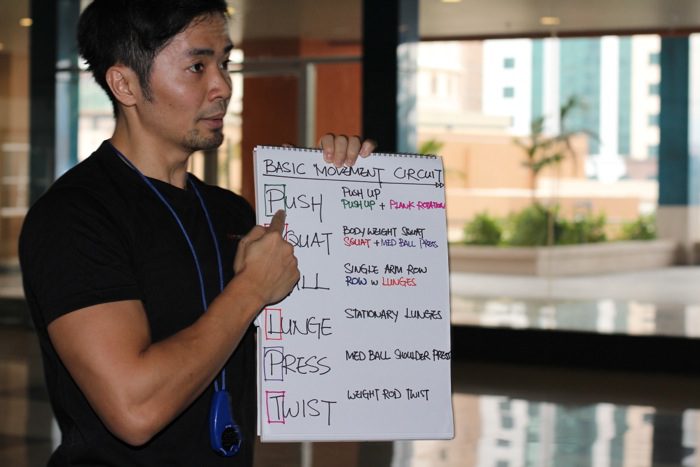 BASIC MOVEMENT CIRCUIT
PUSH
PUSH UP
PUSH UP + PLANK ROTATION
QUAT
BODY WEIGHT SQUAT
SQUAT + MED BALL PRESS
LL
SINGLE ARM ROW
ROW W LUNGES
LUNGE
STATIONARY LUNGES
PRESS
MED BALL SHOULDER PRESS
TWIST
WEIGHT ROD TWIST